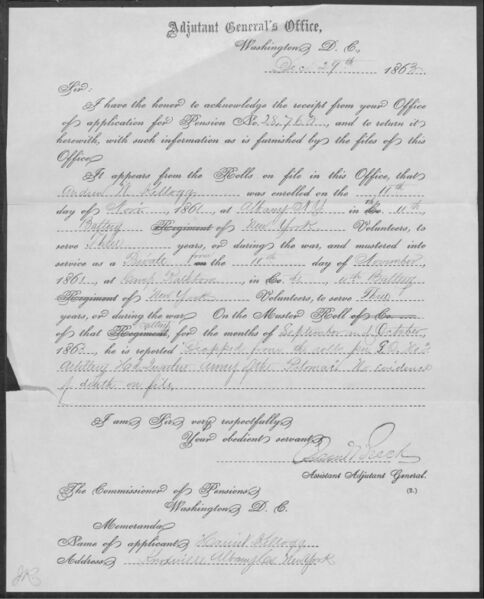 Adjutant General's Office,
Washington, D. C.,
Dec. 29th 1863
Sir:
I have the honor to acknowledge the receipt from your Office
of application for Pension No. 28,760, and to return it
herewith, with such information as is furnished by the files of this
Office.
It appears from the Rolls on file in this Office, that
Andrew W. Kellogg was enrolled on the 11th
day of Nov. 1861, at Albany N.Y. in Co. 11th
Battery Regiment of New York Volunteers, to
serve three years, or during the war, and mustered into
service as a Private on the 11th day of November
1861, at Camp in Co. 11th Battery
Regiment of New York Volunteers, to serve Three
years, or during the war. On the Muster Roll of Co.
of that Regiment, Battery for the months of September and October,
1863, he is reported "Dropped from the rolls per G.O. No 3
Artillery Headquarters Army of the Potomac. No evidence
of death on file.
I am, Sir, very respectfully,
Your obedient servant,
Assistant Adjutant General.
The Commissioner of Pensions, (2.)
Washington, D. C.
Memoranda:
Name of applicant, Harriet Kellogg
Address, New York